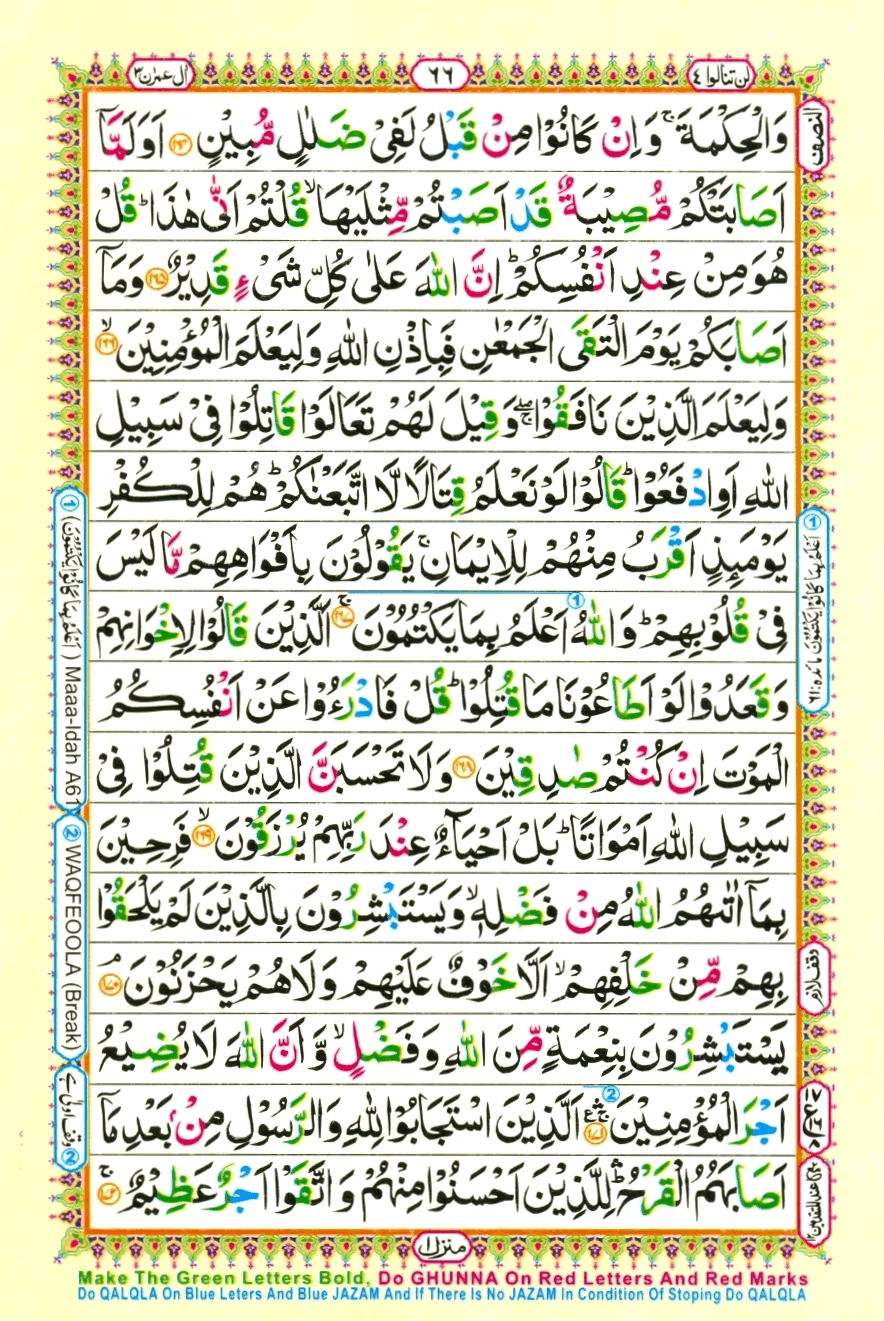 لن تنالوا ٤
٦٦
اٰل عمرٰن ٣
وَالۡحِكۡمَةَ ۚ وَاِنۡ كَانُوۡا مِنۡ قَبۡلُ لَفِىۡ ضَلٰلٍ مُّبِيۡنٍ ﴿۱۶۴﴾ اَوَلَمَّاۤ
اَصَابَتۡكُمۡ مُّصِيۡبَةٌ قَدۡ اَصَبۡتُمۡ مِّثۡلَيۡهَا ۙ قُلۡتُمۡ اَنّٰى هٰذَا ؕ قُلۡ
هُوَ مِنۡ عِنۡدِ اَنۡفُسِكُمۡ ؕ اِنَّ اللّٰهَ عَلٰى كُلِّ شَىۡءٍ قَدِيۡرٌ ﴿۱۶۵﴾ وَمَاۤ
اَصَابَكُمۡ يَوۡمَ الۡتَقَى الۡجَمۡعٰنِ فَبِاِذۡنِ اللّٰهِ وَلِيَعۡلَمَ الۡمُؤۡمِنِيۡنَ ۙ ﴿۱۶۶﴾
وَلِيَعۡلَمَ الَّذِيۡنَ نَافَقُوۡا ۖۚ وَقِيۡلَ لَهُمۡ تَعَالَوۡا قَاتِلُوۡا فِىۡ سَبِيۡلِ
اللّٰهِ اَوِ ادۡفَعُوۡا ؕ قَالُوۡا لَوۡ نَعۡلَمُ قِتَالًا لَّا اتَّبَعۡنٰكُمۡ ؕ هُمۡ لِلۡكُفۡرِ
يَوۡمَٮِٕذٍ اَقۡرَبُ مِنۡهُمۡ لِلۡاِيۡمَانِ ۚ يَقُوۡلُوۡنَ بِاَفۡوَاهِهِمۡ مَّا لَيۡسَ
فِىۡ قُلُوۡبِهِمۡ ؕ وَاللّٰهُ اَعۡلَمُ بِمَا يَكۡتُمُوۡنَ ۚ ﴿۱۶۷﴾ اَلَّذِيۡنَ قَالُوۡا لِاِخۡوَانِهِمۡ
وَقَعَدُوۡا لَوۡ اَطَاعُوۡنَا مَا قُتِلُوۡا ؕ قُلۡ فَادۡرَءُوۡا عَنۡ اَنۡفُسِكُمُ
الۡمَوۡتَ اِنۡ كُنۡتُمۡ صٰدِقِيۡنَ ﴿۱۶۸﴾ وَلَا تَحۡسَبَنَّ الَّذِيۡنَ قُتِلُوۡا فِىۡ
سَبِيۡلِ اللّٰهِ اَمۡوَاتًا ؕ بَلۡ اَحۡيَآءٌ عِنۡدَ رَبِّهِمۡ يُرۡزَقُوۡنَ ۙ ﴿۱۶۹﴾ فَرِحِيۡنَ
بِمَاۤ اٰتٰٮهُمُ اللّٰهُ مِنۡ فَضۡلِهٖ ۙ وَيَسۡتَبۡشِرُوۡنَ بِالَّذِيۡنَ لَمۡ يَلۡحَقُوۡا
بِهِمۡ مِّنۡ خَلۡفِهِمۡ ۙ اَلَّا خَوۡفٌ عَلَيۡهِمۡ وَلَا هُمۡ يَحۡزَنُوۡنَ ۘ ﴿۱۷۰﴾
يَسۡتَبۡشِرُوۡنَ بِنِعۡمَةٍ مِّنَ اللّٰهِ وَفَضۡلٍ ۙ وَّاَنَّ اللّٰهَ لَا يُضِيۡعُ
اَجۡرَ الۡمُؤۡمِنِيۡنَ ﴿۱۷۱﴾ اَلَّذِيۡنَ اسۡتَجَابُوۡا لِلّٰهِ وَالرَّسُوۡلِ مِنۡۢ بَعۡدِ مَاۤ
اَصَابَهُمُ الۡقَرۡحُ ۛؕ لِلَّذِيۡنَ اَحۡسَنُوۡا مِنۡهُمۡ وَاتَّقَوۡا اَجۡرٌ عَظِيۡمٌ ۚ ﴿۱۷۲﴾
النصف
① اَعْلَمُ بِمَا كَانُوْا يَكْتُمُوْنَ مائدہ:٦١
وقف لازم
① (اَعْلَمُ بِمَا كَانُوْا يَكْتُمُوْنَ) Maaa-Idah A61
② WAQFEOOLA (Break)
② وقف اولیٰ ے
منزل ١
Make The Green Letters Bold, Do GHUNNA On Red Letters And Red Marks
Do QALQLA On Blue Leters And Blue JAZAM And If There Is No JAZAM In Condition Of Stoping Do QALQLA